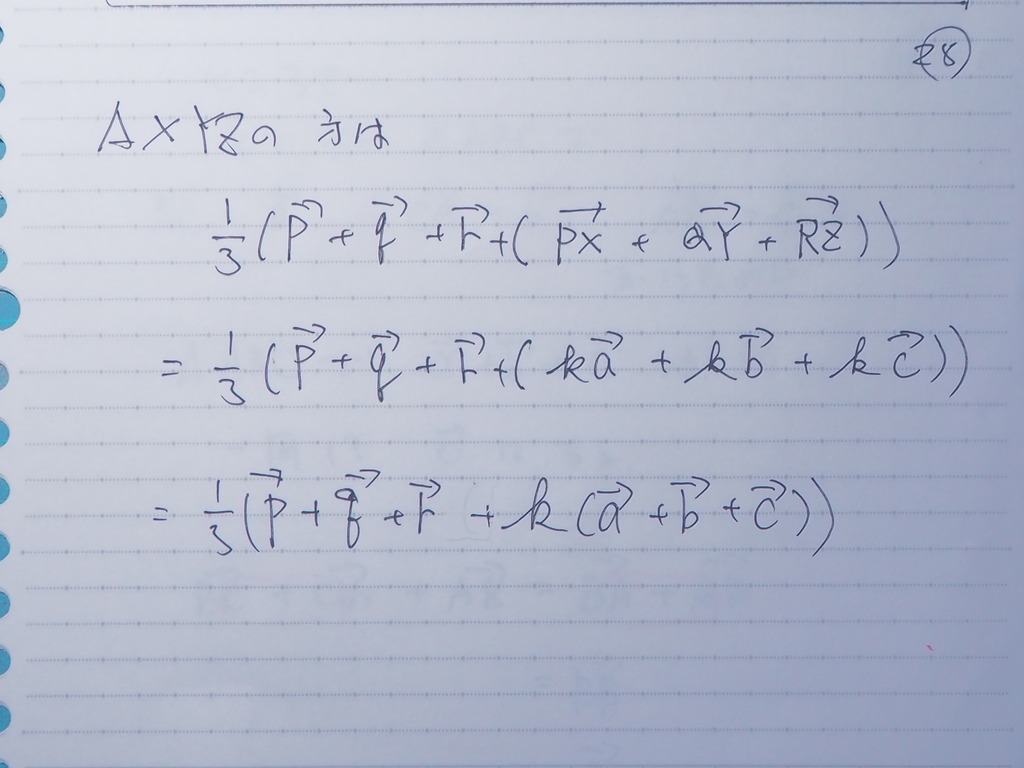 28
△XYZの方は
1/3(p⃗ + q⃗ + r⃗ + (PX⃗ + QY⃗ + RZ⃗))
= 1/3(p⃗ + q⃗ + r⃗ + (ka⃗ + kb⃗ + kc⃗))
= 1/3(p⃗ + q⃗ + r⃗ + k(a⃗ + b⃗ + c⃗))